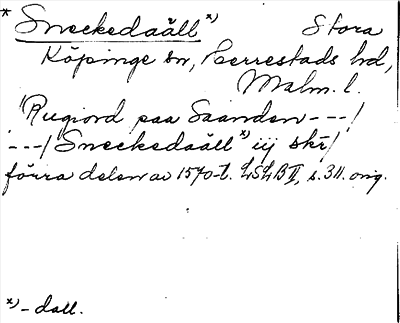 * Sneckedaäll *) Stora
Köpinge sn, Herrestads hd,
Malm. l.
"Rugiord paa Saanden - - - /
- - - / Sneckedaäll *) iij skr /
förra delen av 1570-t. LSLB II, s. 311. orig.
*) - dall.